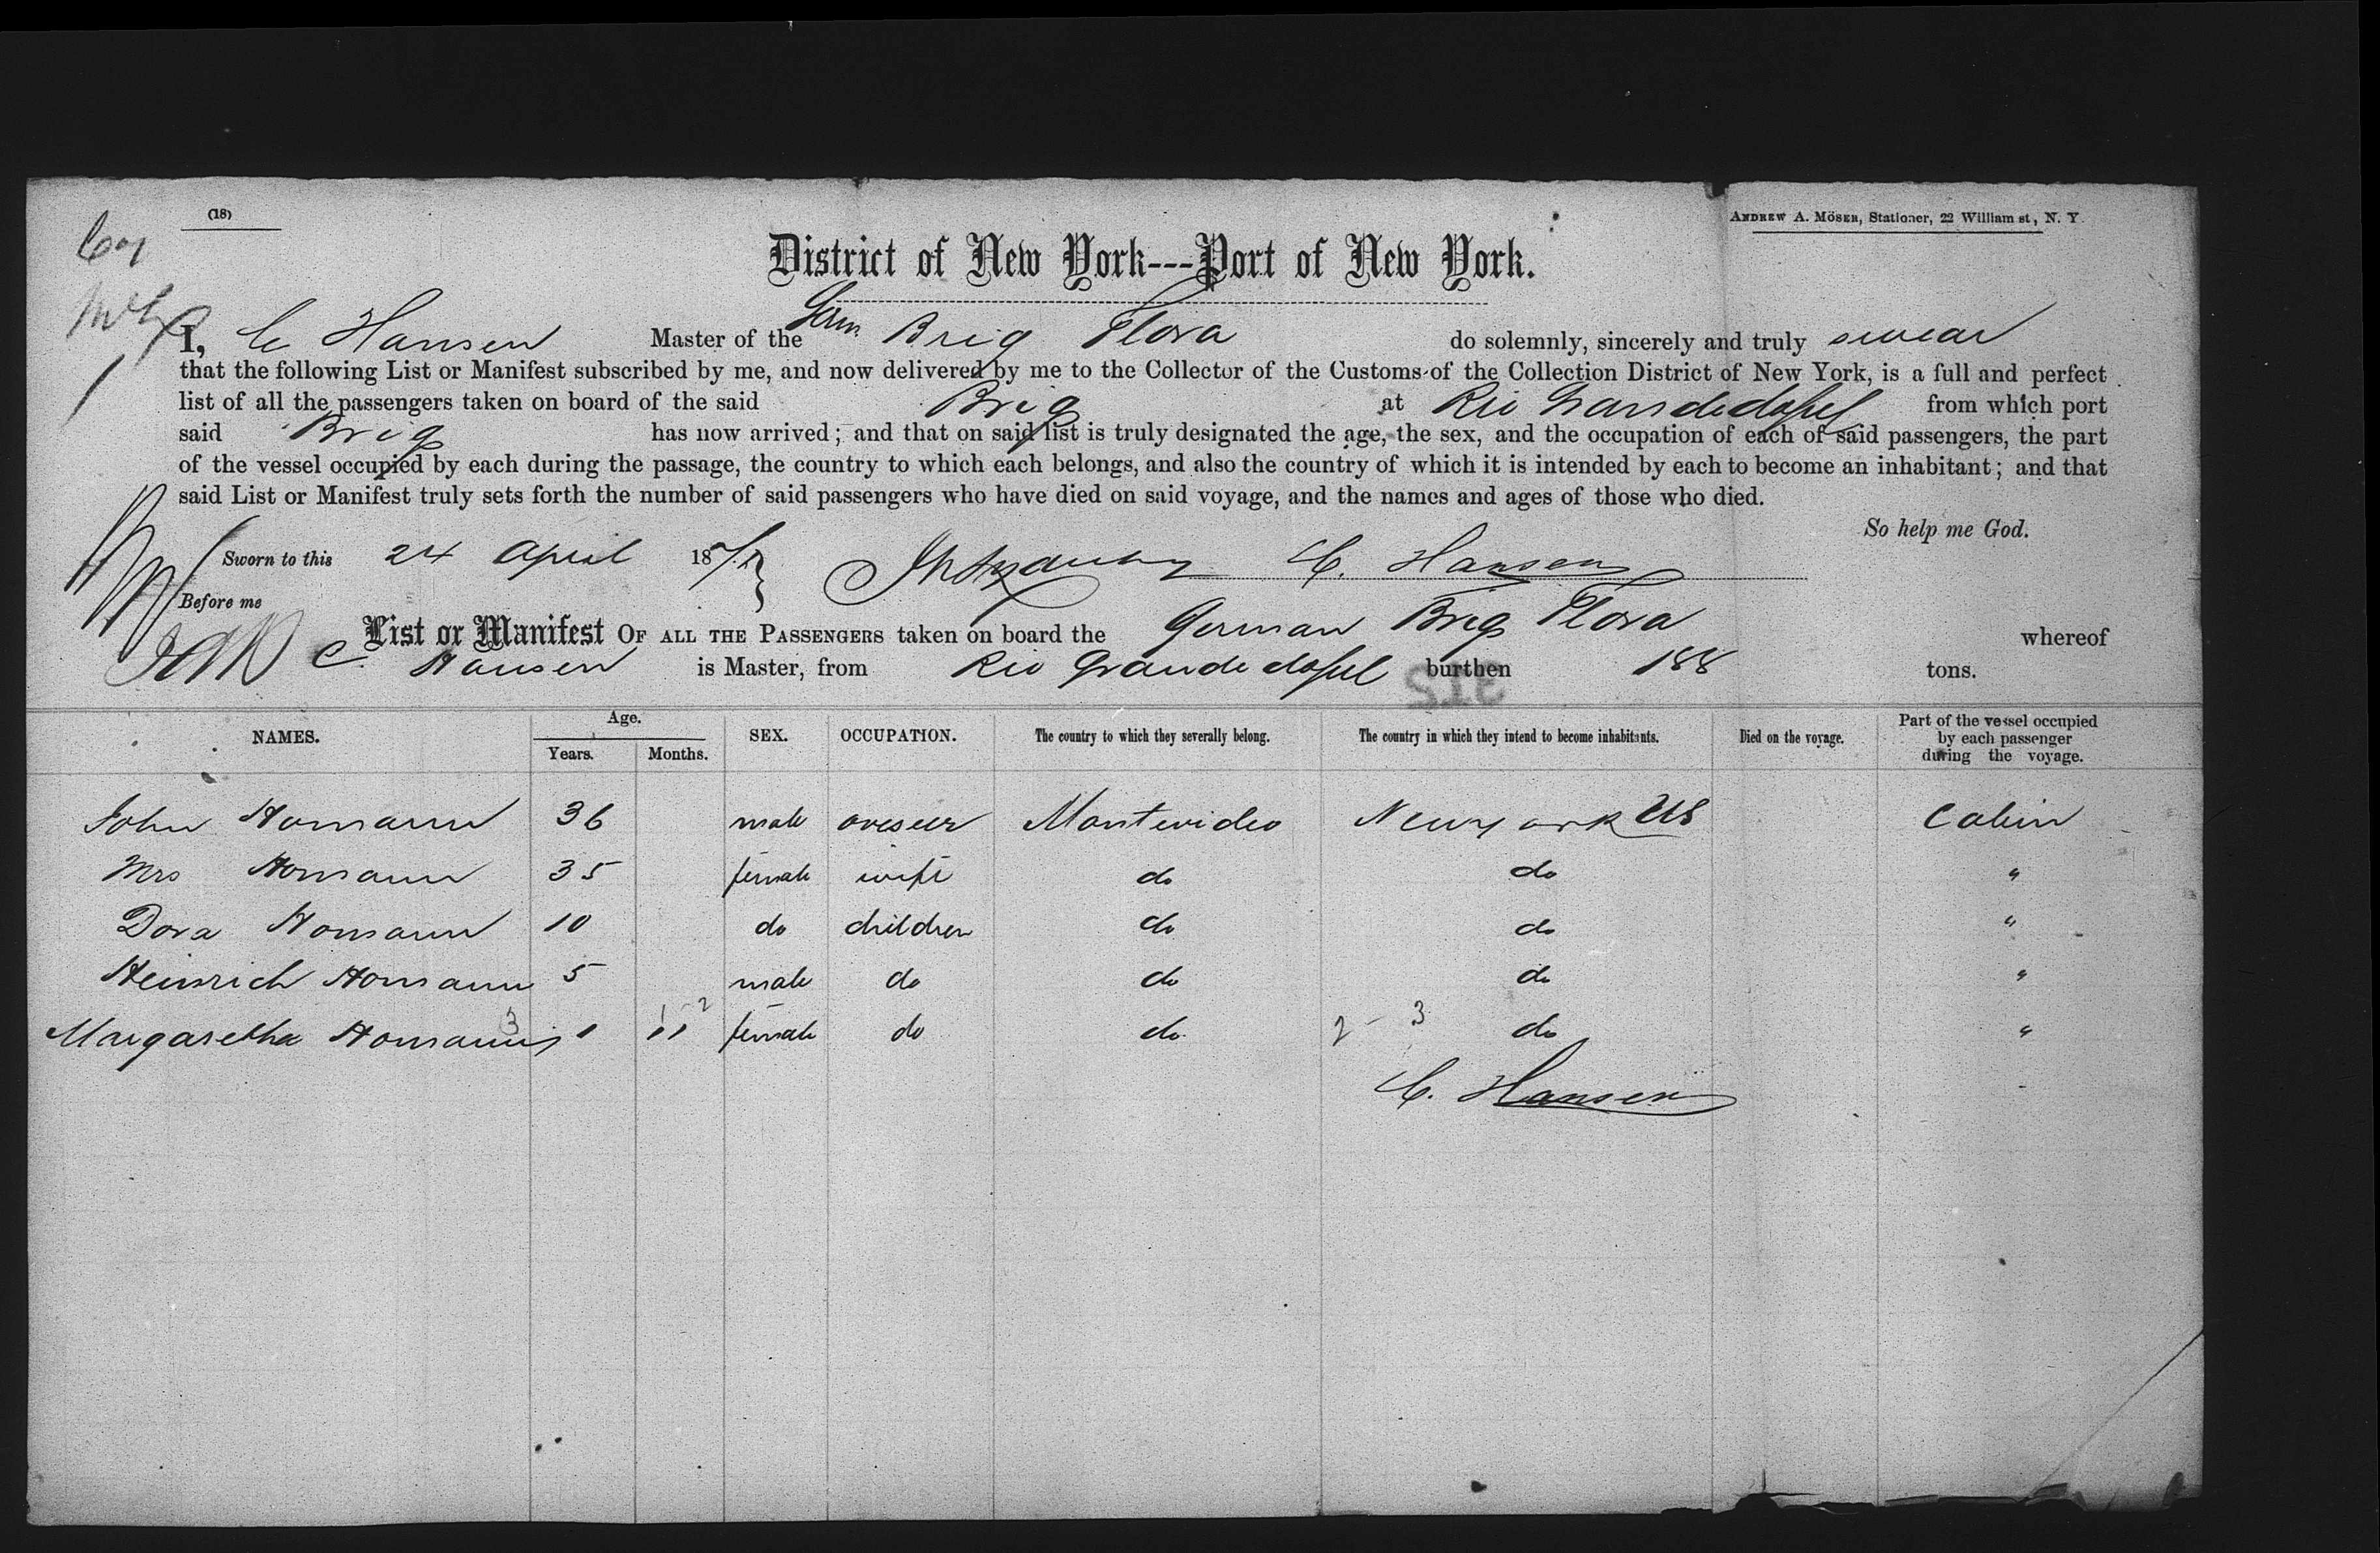 (18)
ANDREW A. MÖSER, Stationer, 22 William st, N. Y
District of New York---Port of New York.
I, C Hansen Master of the Germ. Brig Flora do solemnly, sincerely and truly swear
that the following List or Manifest subscribed by me, and now delivered by me to the Collector of the Customs of the Collection District of New York, is a full and perfect
list of all the passengers taken on board of the said Brig at Rio Grande do Sul from which port
said Brig has now arrived; and that on said list is truly designated the age, the sex, and the occupation of each of said passengers, the part
of the vessel occupied by each during the passage, the country to which each belongs, and also the country of which it is intended by each to become an inhabitant; and that
said List or Manifest truly sets forth the number of said passengers who have died on said voyage, and the names and ages of those who died.
So help me God.
Sworn to this 24 April 187 C. Hansen
Before me
List or Manifest OF ALL THE PASSENGERS taken on board the German Brig Flora whereof
C. Hansen is Master, from Rio Grande do Sul burthen 188 tons.
NAMES. Age. Years. Months. SEX. OCCUPATION. The country to which they severally belong. The country in which they intend to become inhabitants. Died on the voyage. Part of the vessel occupied by each passenger during the voyage.
John Homann 36 male oveseer Montevideo Newyork US Cabin
Mrs Homann 35 female wife do do "
Dora Homann 10 do children do do "
Heinrich Homann 5 male do do do "
Margaretha Homann 3 1 11 2 female do do 2 - 3 do "
C. Hansen